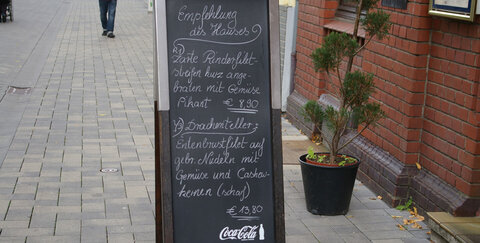 Empfehlung
des Hauses
1) Zarte Rinderfilet-
streifen kurz ange-
braten mit Gemüse
Pikant € 8,90
2) Drachenteller:
Entenbrustfilet auf
gebr. Nudeln mit
Gemüse und Cashew-
kernen (scharf)
€ 13,80
Coca-Cola